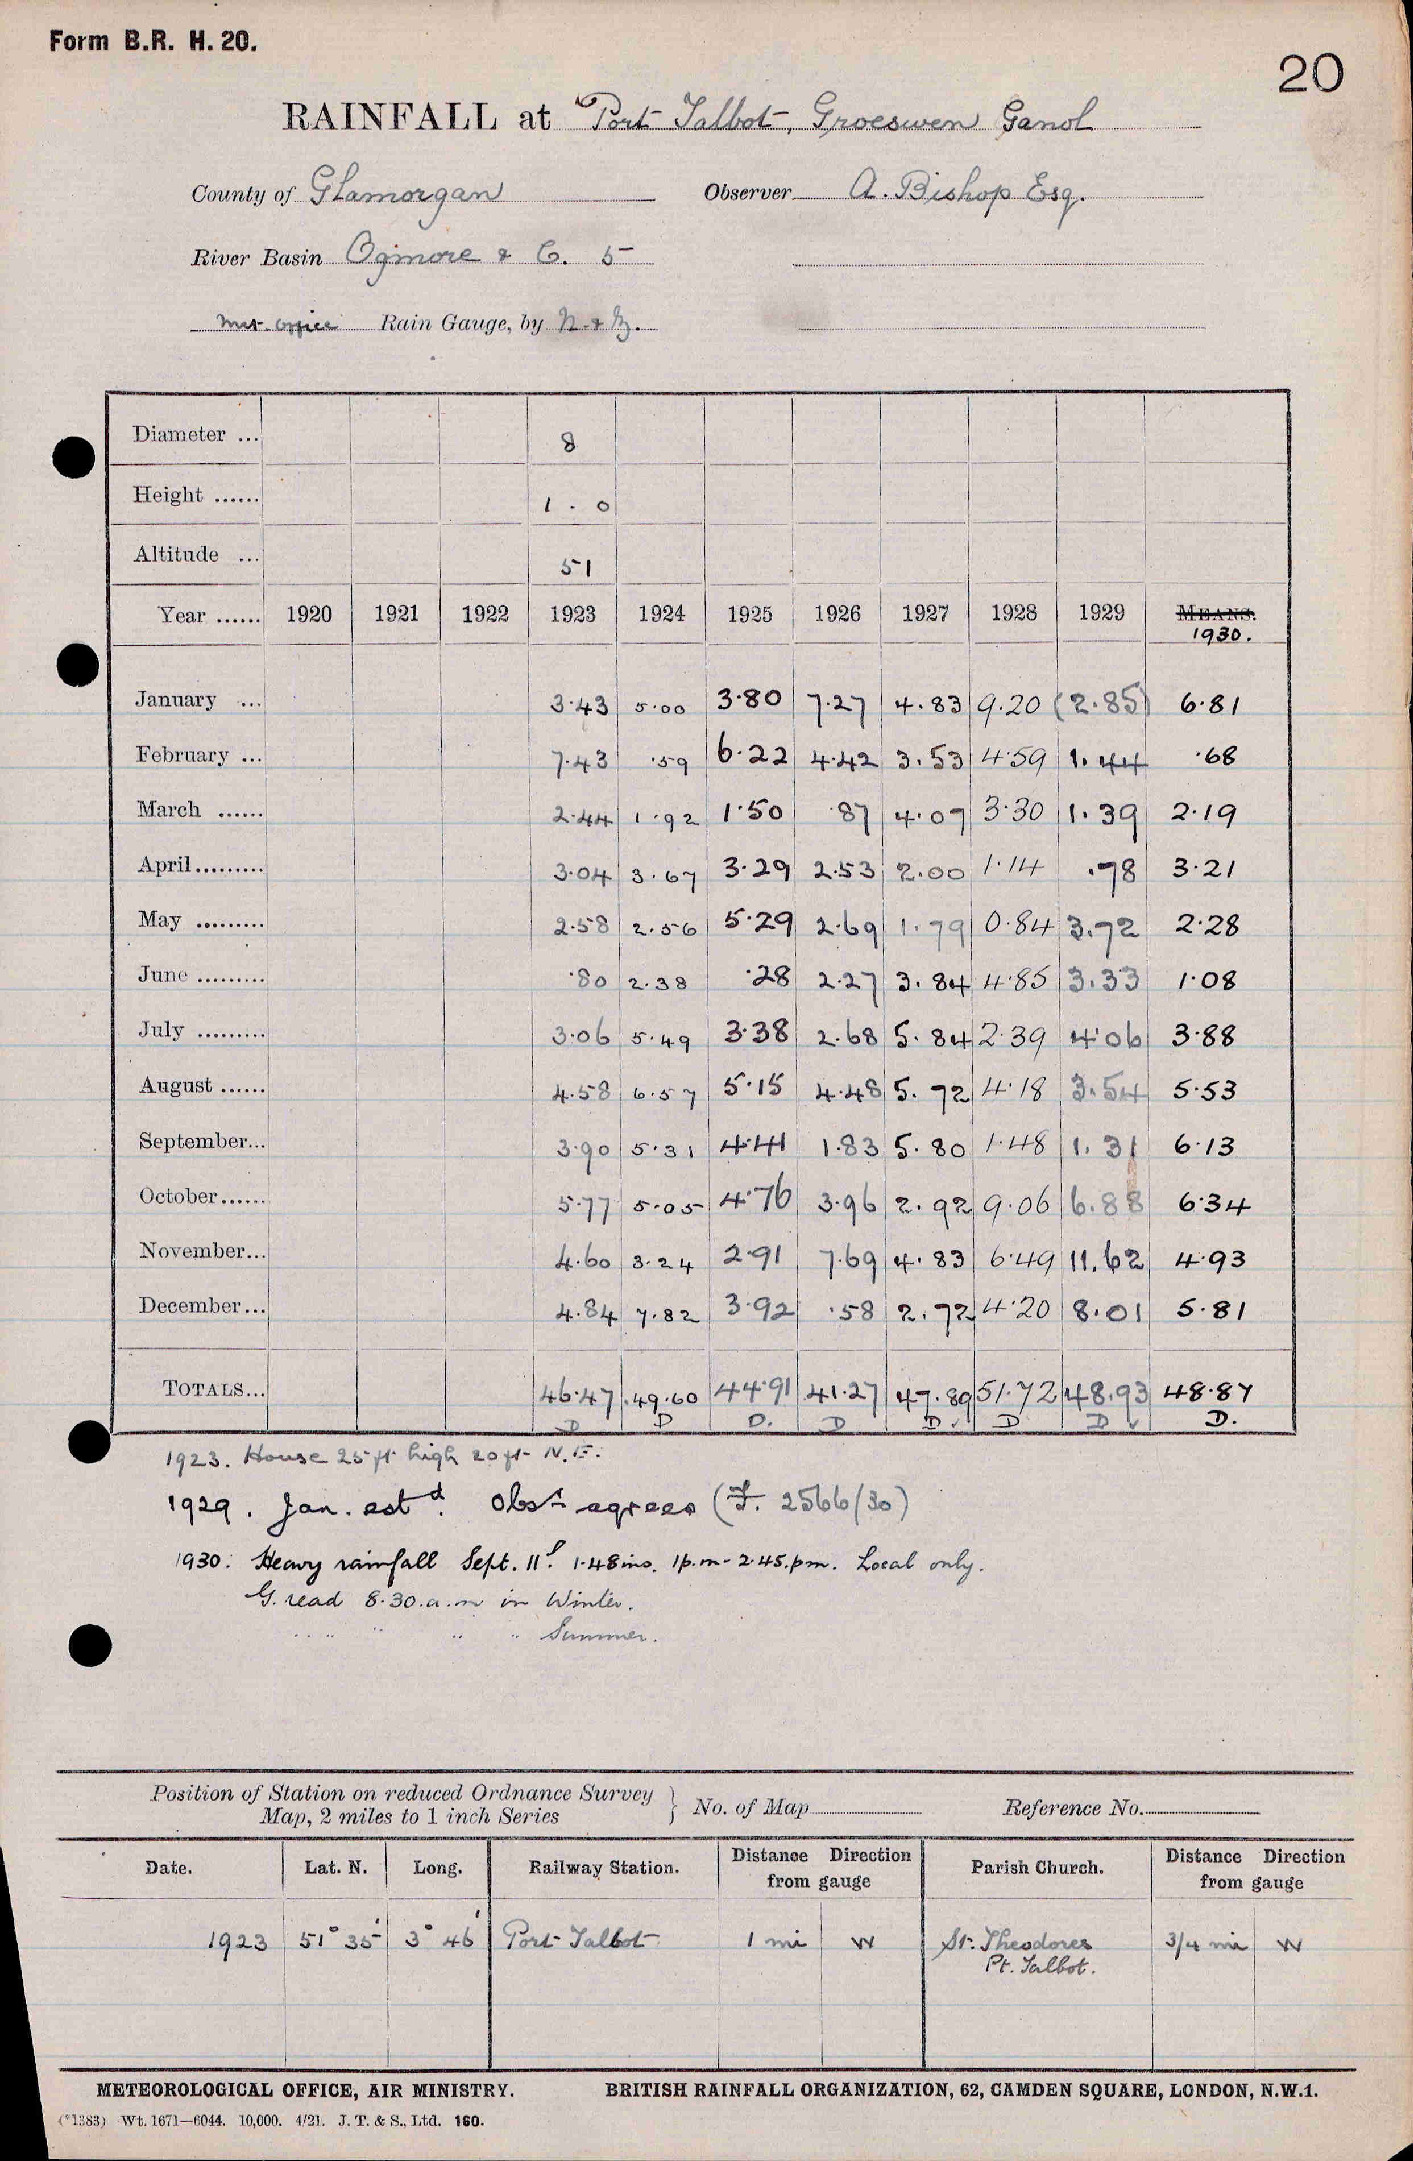 Form B.R. H. 20.
20
RAINFALL at Port Talbot, Groeswen Ganol
County of Glamorgan Observer A. Bishop Esq.
River Basin Ogmore & C. 5
Met. Office Rain Gauge, by N. & Z.
Diameter ... 8
Height ...... 1 . 0
Altitude ... 51
Year ...... 1920 1921 1922 1923 1924 1925 1926 1927 1928 1929 MEANS.
1930.
January ... 3.43 5.00 3.80 7.27 4.83 9.20 (2.85) 6.81
February ... 7.43 .59 6.22 4.42 3.53 4.59 1.44 .68
March ...... 2.44 1.92 1.50 .87 4.07 3.30 1.39 2.19
April......... 3.04 3.67 3.29 2.53 2.00 1.14 .78 3.21
May ......... 2.58 2.56 5.29 2.69 1.79 0.84 3.72 2.28
June ......... .80 2.38 .28 2.27 3.84 4.85 3.33 1.08
July ......... 3.06 5.49 3.38 2.68 5.84 2.39 4.06 3.88
August ...... 4.58 6.57 5.15 4.48 5.72 4.18 3.54 5.53
September... 3.90 5.31 4.41 1.83 5.80 1.48 1.31 6.13
October...... 5.77 5.05 4.76 3.96 2.92 9.06 6.88 6.34
November... 4.60 3.24 2.91 7.69 4.83 6.49 11.62 4.93
December... 4.84 7.82 3.92 .58 2.72 4.20 8.01 5.81
TOTALS... 46.47 49.60 44.91 41.27 47.89 51.72 48.93 48.87
D D D. D D ✓ D D ✓ D.
1923. House 25 ft high 20 ft N.E.
1929. Jan. estd. Obsr agrees (F. 2566/30)
1930: Heavy rainfall Sept. 11th 1.48 ins. 1p.m - 2.45.pm. Local only.
G. read 8.30.a.m in Winter.
.. .. " .. .. Summer.
Position of Station on reduced Ordnance Survey
Map, 2 miles to 1 inch Series } No. of Map Reference No.
Date. Lat. N. Long. Railway Station. Distance Direction from gauge Parish Church. Distance Direction from gauge
1923 51° 35' 3° 46' Port Talbot 1 mi W St. Theodores 3/4 mi W
Pt. Talbot.
METEOROLOGICAL OFFICE, AIR MINISTRY. BRITISH RAINFALL ORGANIZATION, 62, CAMDEN SQUARE, LONDON, N.W.1.
(*1383) Wt. 1671—6044. 10,000. 4/21. J. T. & S., Ltd. 160.